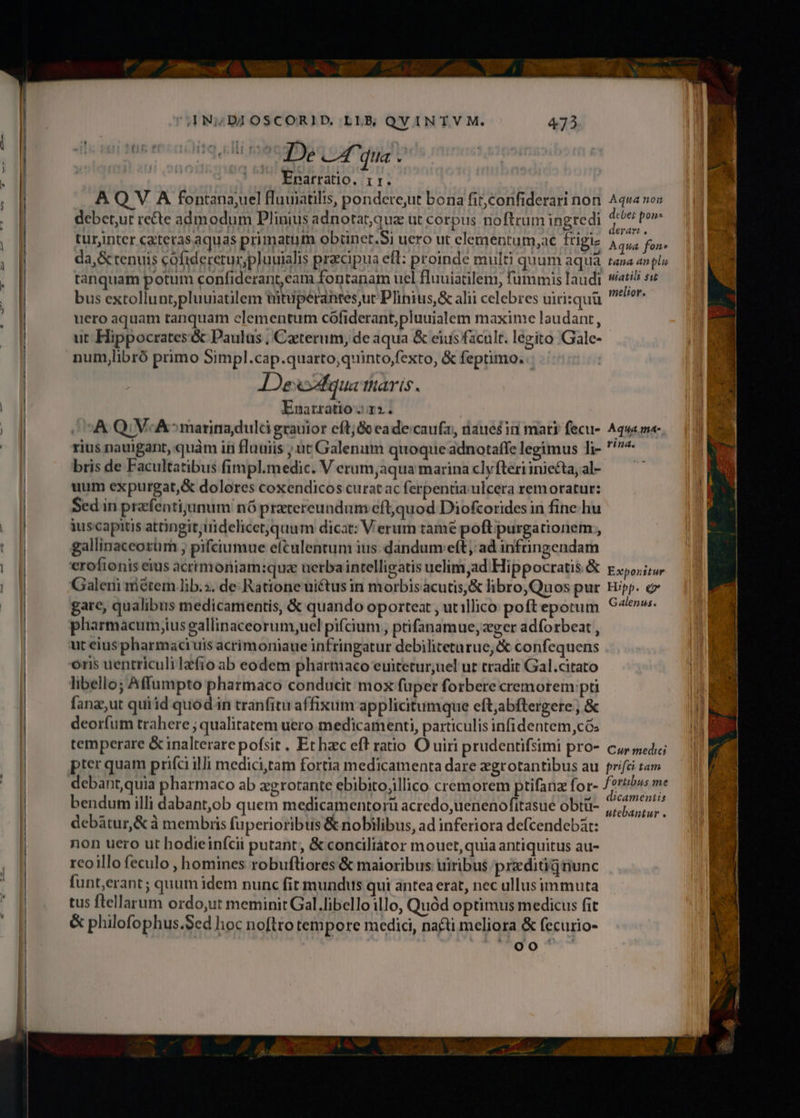 IN DIOSCORID. LIB. QVINTVM. 473
De Aqua.
Enarratio. 11.
AQVA fontana,uel fluuiatilis, pondere,ut bona sit,considerari non
debet,ut recte admodum Plinius adnotat,quæ ut corpus nostrum ingredi
tur,inter cæteras aquas primatum obtinet.Si uero ut elementum,ac frigi-
da,&tenuis cōsideretur,pluuialis præcipua est: proinde multi quum aquā
tanquam potum considerant,eam fontanam uel fluuiatilem, summis laudi
bus extollunt,pluuiatilem uituperantes,ut Plinius,& alii celebres uiri:quū
uero aquam tanquam elementum cōsiderant,pluuialem maxime laudant,
ut Hippocrates & Paulus. Cæterum, de aqua & eius facult. legito Gale-
num,librō primo Simpl.cap.quarto,quinto,sexto, & septimo.
Aqua non
debet pon-
derari.
Aqua fon-
tana an plu
uiatili sit
melior.
De Aqua maris.
Enarratio. 12.
AQVA marina,dulci grauior est,& ea de causa, naues in mari secu-
rius nauigant, quàm in fluuiis, ut Galenum quoque adnotasse legimus li-
bris de Facultatibus simpl.medic. Verum,aqua marina clysteri iniecta, al-
uum expurgat,& dolores coxendicos curat ac serpentia ulcera remoratur:
Sed in præsenti,unum nō prætereundum est,quod Dioscorides in fine hu
ius capitis attingit,uidelicet,quum dicat: Verum tamē post purgationem,
gallinaceorum, pisciumue esculentum ius dandum est, ad infringendam
erosionis eius acrimoniam:quæ uerba intelligatis uelim,ad Hippocratis &
Galeni mētem lib.2. de Ratione uictus in morbis acutis,& libro,Quos pur
gare, qualibus medicamentis, & quando oporteat, ut illico post epotum
pharmacum,ius gallinaceorum,uel piscium, ptisanamue, æger adsorbeat,
ut eius pharmaci uis acrimoniaue infringatur debiliteturue,& consequens
oris uentriculi læsio ab eodem pharmaco euitetur,uel ut tradit Gal.citato
libello; Assumpto pharmaco conducit mox super sorbere cremorem pti
sanæ,ut qui id quod in transitu affixum applicitumque est,abstergere, &
deorsum trahere, qualitatem uero medicamenti, particulis insidentem,cōs
temperare & inalterare possit. Et hæc est ratio O uiri prudentissimi pro-
pter quam prisci illi medici,tam fortia medicamenta dare ægrotantibus au
debant,quia pharmaco ab ægrotante ebibito,illico cremorem ptisanæ sor-
bendum illi dabant,ob quem medicamentorū acredo,uenenositasue obtū-
debātur,& à membris superioribus & nobilibus, ad inferiora descendebāt:
non uero ut hodie inscii putant, & conciliator mouet,quia antiquitus au-
reo illo seculo, homines robustiores & maioribus uiribus præditi q̄ nunc
sunt,erant; quum idem nunc sit mundus qui antea erat, nec ullus immuta
tus stellarum ordo,ut meminit Gal.libello illo, Quòd optimus medicus sit
& philosophus.Sed hoc nostro tempore medici, nacti meliora & securio-
Aqua ma-
rina.
Exponitur
Hipp. &
Galenus.
Cur medici
prisci tam
fortibus me
dicamentis
utebantur.
oo